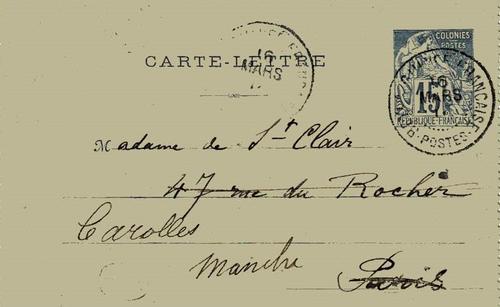 COLONIES
POSTES
CARTE-LETTRE
16
MARS
GUINÉE FRANÇAISE
16
MARS
POSTES
15
RÉPUBLIQUE FRANÇAISE
Madame de St Clair
47 rue du Rocher
Carolles
Manche
Paris